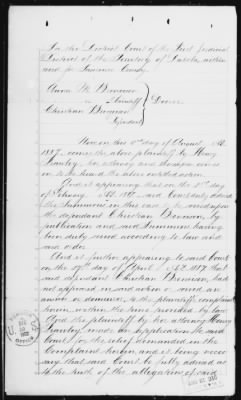 In the District Court of the First Judicial
District of the Territory of Dakota, within
and for Lawrence County.
Anna M. Brennan
Plaintiff
Decree
Christian
Defendant
Now on this day of August A.D.
1887, comes the above plaintiff by Henry
Frawley, her attorney and thereupon comes
on to be heard the above entitled action.
And it appearing that on the 21st day
of February A.D. 1887, said Court duly ordered
the Summons in this case to be served upon
the defendant Christian by
publication and said Summons having
been duly served according to law and
said order.
And it further appearing to said Court
on the 19th day of April A.D. 1887 that
said defendant Christian had
not appeared in said action or served an
answer or demurrer to the plaintiff's complaint
herein, within the time provided by law
And the plaintiff by her attorney Henry
Frawley made an application to said
Court for the relief demanded in the
Complaint herein, and it being neces-
sary that said Court be fully advised as
to the truth of the allegations of said